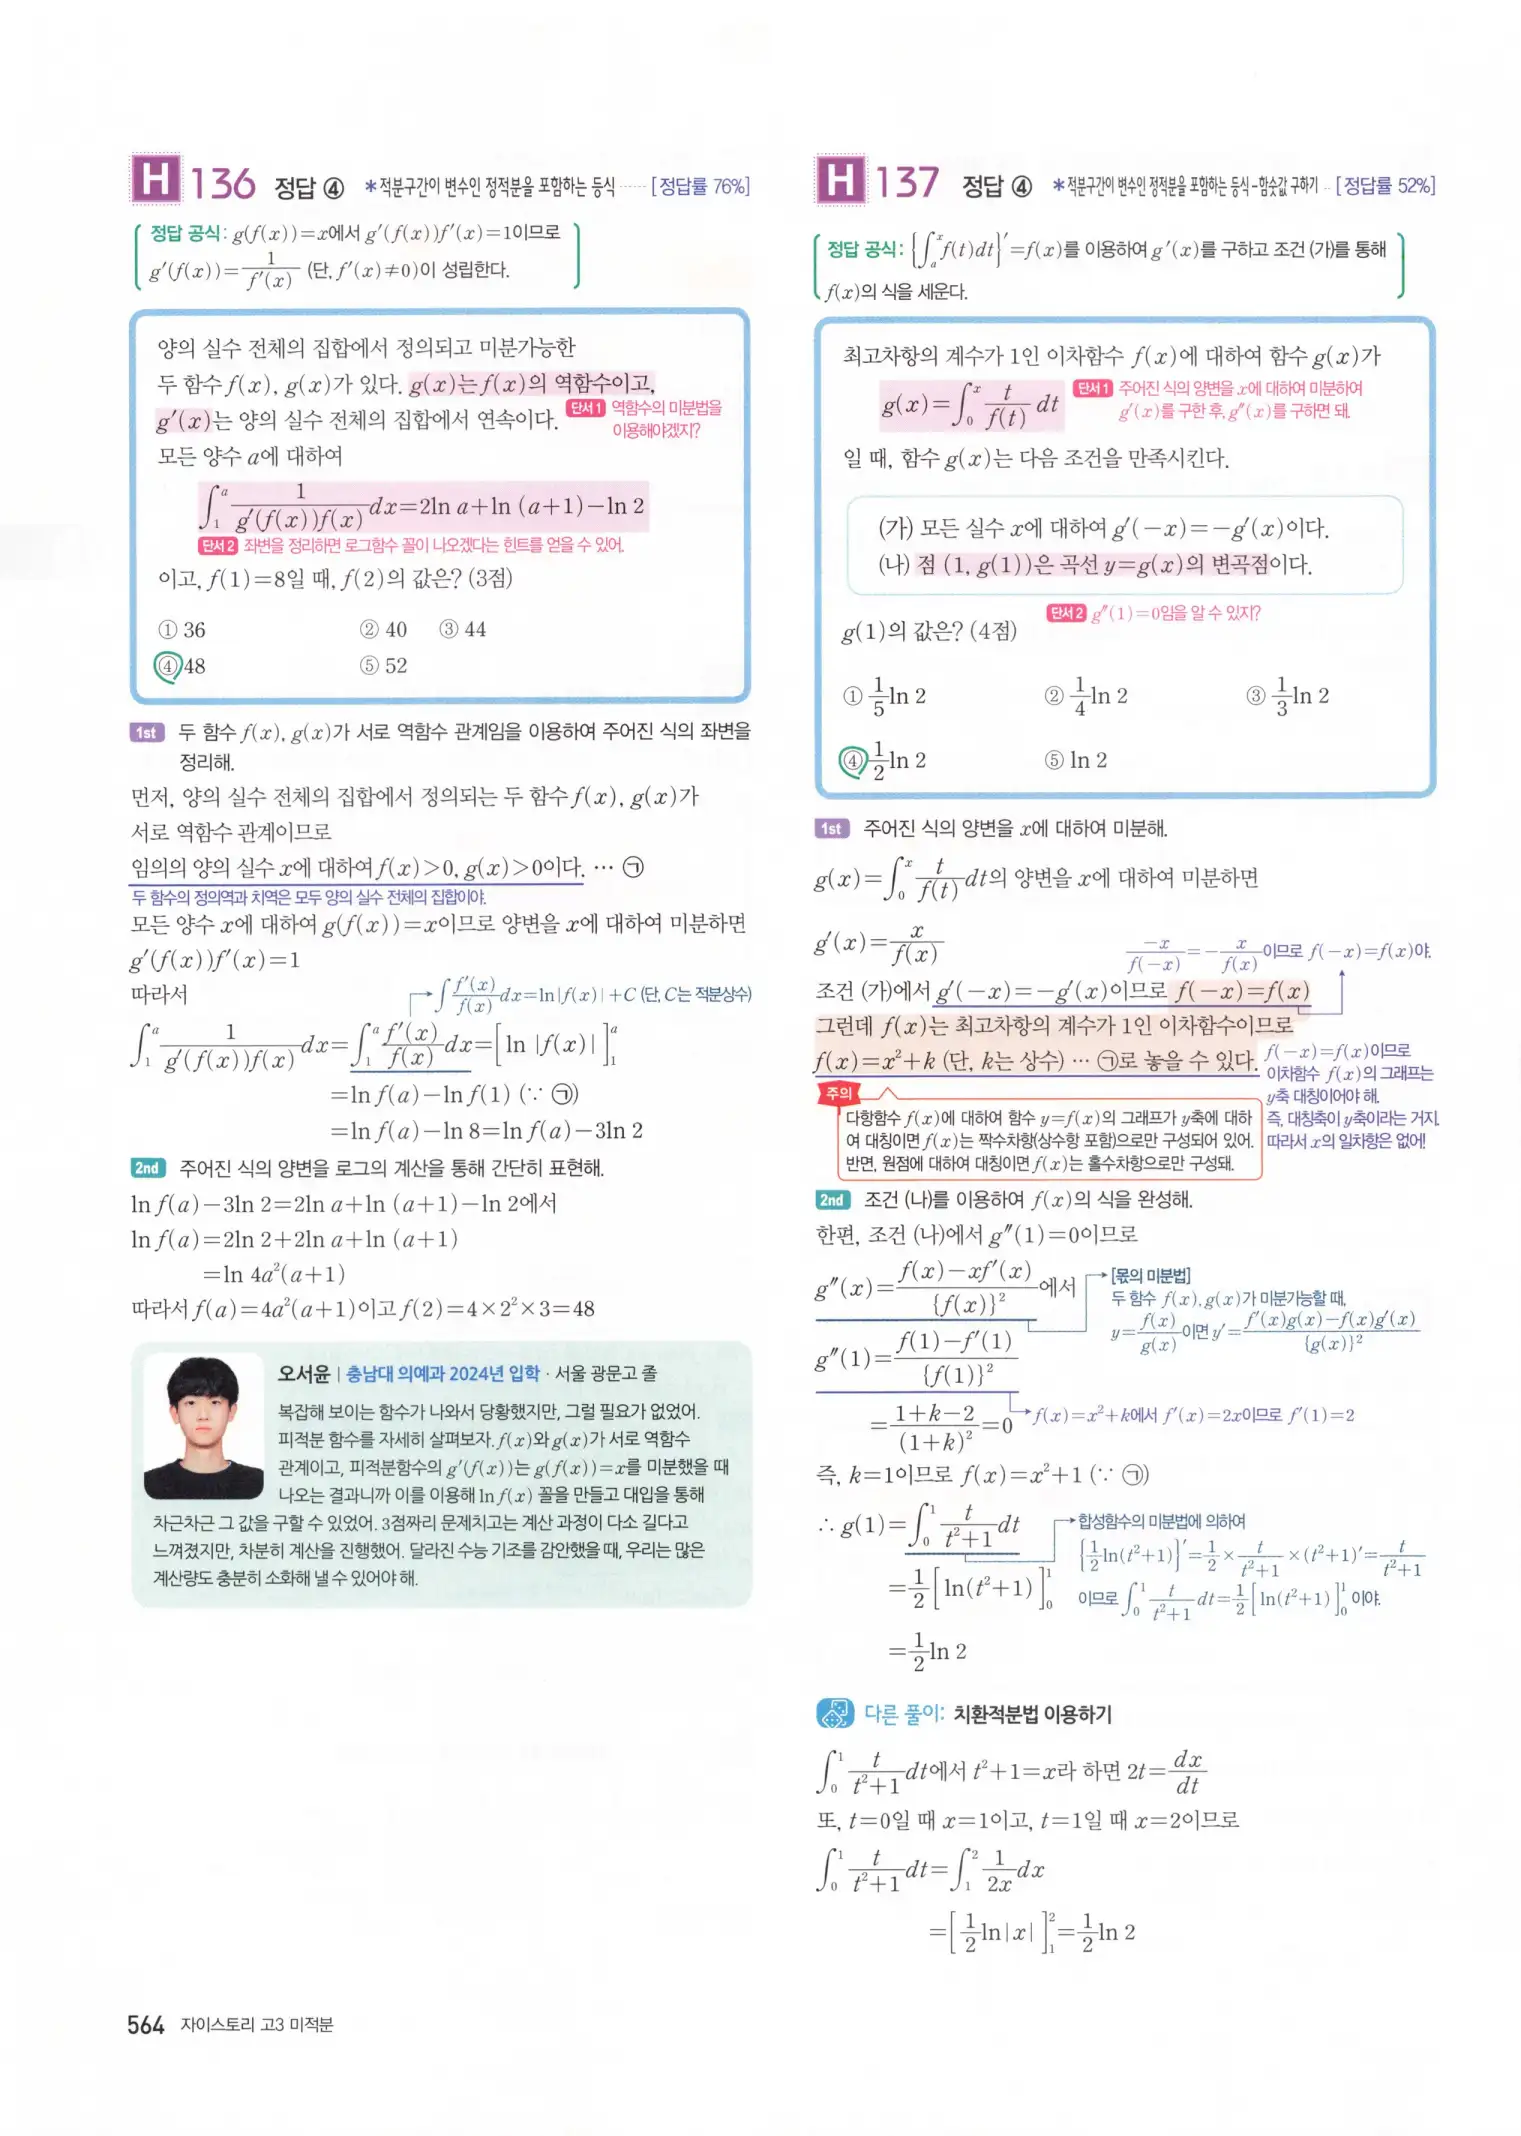 H 136 정답 ④ *적분구간이 변수인 정적분을 포함하는 등식 ····· [정답률 76%]
정답 공식: g(f(x))=x에서 g′(f(x))f′(x)=1이므로
g′(f(x))=1/f′(x) (단, f′(x)≠0)이 성립한다.
양의 실수 전체의 집합에서 정의되고 미분가능한
두 함수 f(x), g(x)가 있다. g(x)는 f(x)의 역함수이고,
g′(x)는 양의 실수 전체의 집합에서 연속이다. 단서1 역함수의 미분법을
이용해야겠지?
모든 양수 a에 대하여
∫₁ᵃ 1/(g′(f(x))f(x)) dx=2ln a+ln (a+1)−ln 2
단서2 좌변을 정리하면 로그함수 꼴이 나오겠다는 힌트를 얻을 수 있어.
이고, f(1)=8일 때, f(2)의 값은? (3점)
① 36 ② 40 ③ 44
④ 48 ⑤ 52
1st 두 함수 f(x), g(x)가 서로 역함수 관계임을 이용하여 주어진 식의 좌변을
정리해.
먼저, 양의 실수 전체의 집합에서 정의되는 두 함수 f(x), g(x)가
서로 역함수 관계이므로
임의의 양의 실수 x에 대하여 f(x)>0, g(x)>0이다. ··· ㉠
두 함수의 정의역과 치역은 모두 양의 실수 전체의 집합이야.
모든 양수 x에 대하여 g(f(x))=x이므로 양변을 x에 대하여 미분하면
g′(f(x))f′(x)=1
따라서 ∫ f′(x)/f(x) dx=ln|f(x)|+C (단, C는 적분상수)
∫₁ᵃ 1/(g′(f(x))f(x)) dx=∫₁ᵃ f′(x)/f(x) dx=[ln |f(x)|]₁ᵃ
=ln f(a)−ln f(1) (∵ ㉠)
=ln f(a)−ln 8=ln f(a)−3ln 2
2nd 주어진 식의 양변을 로그의 계산을 통해 간단히 표현해.
ln f(a)−3ln 2=2ln a+ln (a+1)−ln 2에서
ln f(a)=2ln 2+2ln a+ln (a+1)
=ln 4a²(a+1)
따라서 f(a)=4a²(a+1)이고 f(2)=4×2²×3=48
오서윤 | 충남대 의예과 2024년 입학 · 서울 광문고 졸
복잡해 보이는 함수가 나와서 당황했지만, 그럴 필요가 없었어.
피적분 함수를 자세히 살펴보자. f(x)와 g(x)가 서로 역함수
관계이고, 피적분함수의 g′(f(x))는 g(f(x))=x를 미분했을 때
나오는 결과니까 이를 이용해 ln f(x) 꼴을 만들고 대입을 통해
차근차근 그 값을 구할 수 있었어. 3점짜리 문제치고는 계산 과정이 다소 길다고
느껴졌지만, 차분히 계산을 진행했어. 달라진 수능 기조를 감안했을 때, 우리는 많은
계산량도 충분히 소화해 낼 수 있어야 해.
H 137 정답 ④ *적분구간이 변수인 정적분을 포함하는 등식-함숫값 구하기 ·· [정답률 52%]
정답 공식: {∫ₐˣ f(t)dt}′=f(x)를 이용하여 g′(x)를 구하고 조건 (가)를 통해
f(x)의 식을 세운다.
최고차항의 계수가 1인 이차함수 f(x)에 대하여 함수 g(x)가
g(x)=∫₀ˣ t/f(t) dt 단서1 주어진 식의 양변을 x에 대하여 미분하여
g′(x)를 구한 후, g″(x)를 구하면 돼.
일 때, 함수 g(x)는 다음 조건을 만족시킨다.
(가) 모든 실수 x에 대하여 g′(−x)=−g′(x)이다.
(나) 점 (1, g(1))은 곡선 y=g(x)의 변곡점이다.
단서2 g″(1)=0임을 알 수 있지?
g(1)의 값은? (4점)
① 1/5 ln 2 ② 1/4 ln 2 ③ 1/3 ln 2
④ 1/2 ln 2 ⑤ ln 2
1st 주어진 식의 양변을 x에 대하여 미분해.
g(x)=∫₀ˣ t/f(t) dt의 양변을 x에 대하여 미분하면
g′(x)=x/f(x)
−x/f(−x)=−x/f(x)이므로 f(−x)=f(x)야.
조건 (가)에서 g′(−x)=−g′(x)이므로 f(−x)=f(x)
그런데 f(x)는 최고차항의 계수가 1인 이차함수이므로
f(x)=x²+k (단, k는 상수) ··· ㉠로 놓을 수 있다.
f(−x)=f(x)이므로
이차함수 f(x)의 그래프는
y축 대칭이어야 해.
즉, 대칭축이 y축이라는 거지.
따라서 x의 일차항은 없어!
주의
다항함수 f(x)에 대하여 함수 y=f(x)의 그래프가 y축에 대하
여 대칭이면 f(x)는 짝수차항(상수항 포함)으로만 구성되어 있어.
반면, 원점에 대하여 대칭이면 f(x)는 홀수차항으로만 구성돼.
2nd 조건 (나)를 이용하여 f(x)의 식을 완성해.
한편, 조건 (나)에서 g″(1)=0이므로
g″(x)=(f(x)−xf′(x))/{f(x)}²에서
[몫의 미분법]
두 함수 f(x), g(x)가 미분가능할 때,
y=f(x)/g(x)이면 y′=(f′(x)g(x)−f(x)g′(x))/{g(x)}²
g″(1)=(f(1)−f′(1))/{f(1)}²
=(1+k−2)/(1+k)²=0 f(x)=x²+k에서 f′(x)=2x이므로 f′(1)=2
즉, k=1이므로 f(x)=x²+1 (∵ ㉠)
∴ g(1)=∫₀¹ t/(t²+1) dt
=1/2[ln(t²+1)]₀¹
합성함수의 미분법에 의하여
{1/2 ln(t²+1)}′=1/2×t/(t²+1)×(t²+1)′=t/(t²+1)
이므로 ∫₀¹ t/(t²+1) dt=1/2[ln(t²+1)]₀¹이야.
=1/2 ln 2
다른 풀이: 치환적분법 이용하기
∫₀¹ t/(t²+1) dt에서 t²+1=x라 하면 2t=dx/dt
또, t=0일 때 x=1이고, t=1일 때 x=2이므로
∫₀¹ t/(t²+1) dt=∫₁² 1/2x dx
=[1/2 ln|x|]₁²=1/2 ln 2
564 자이스토리 고3 미적분